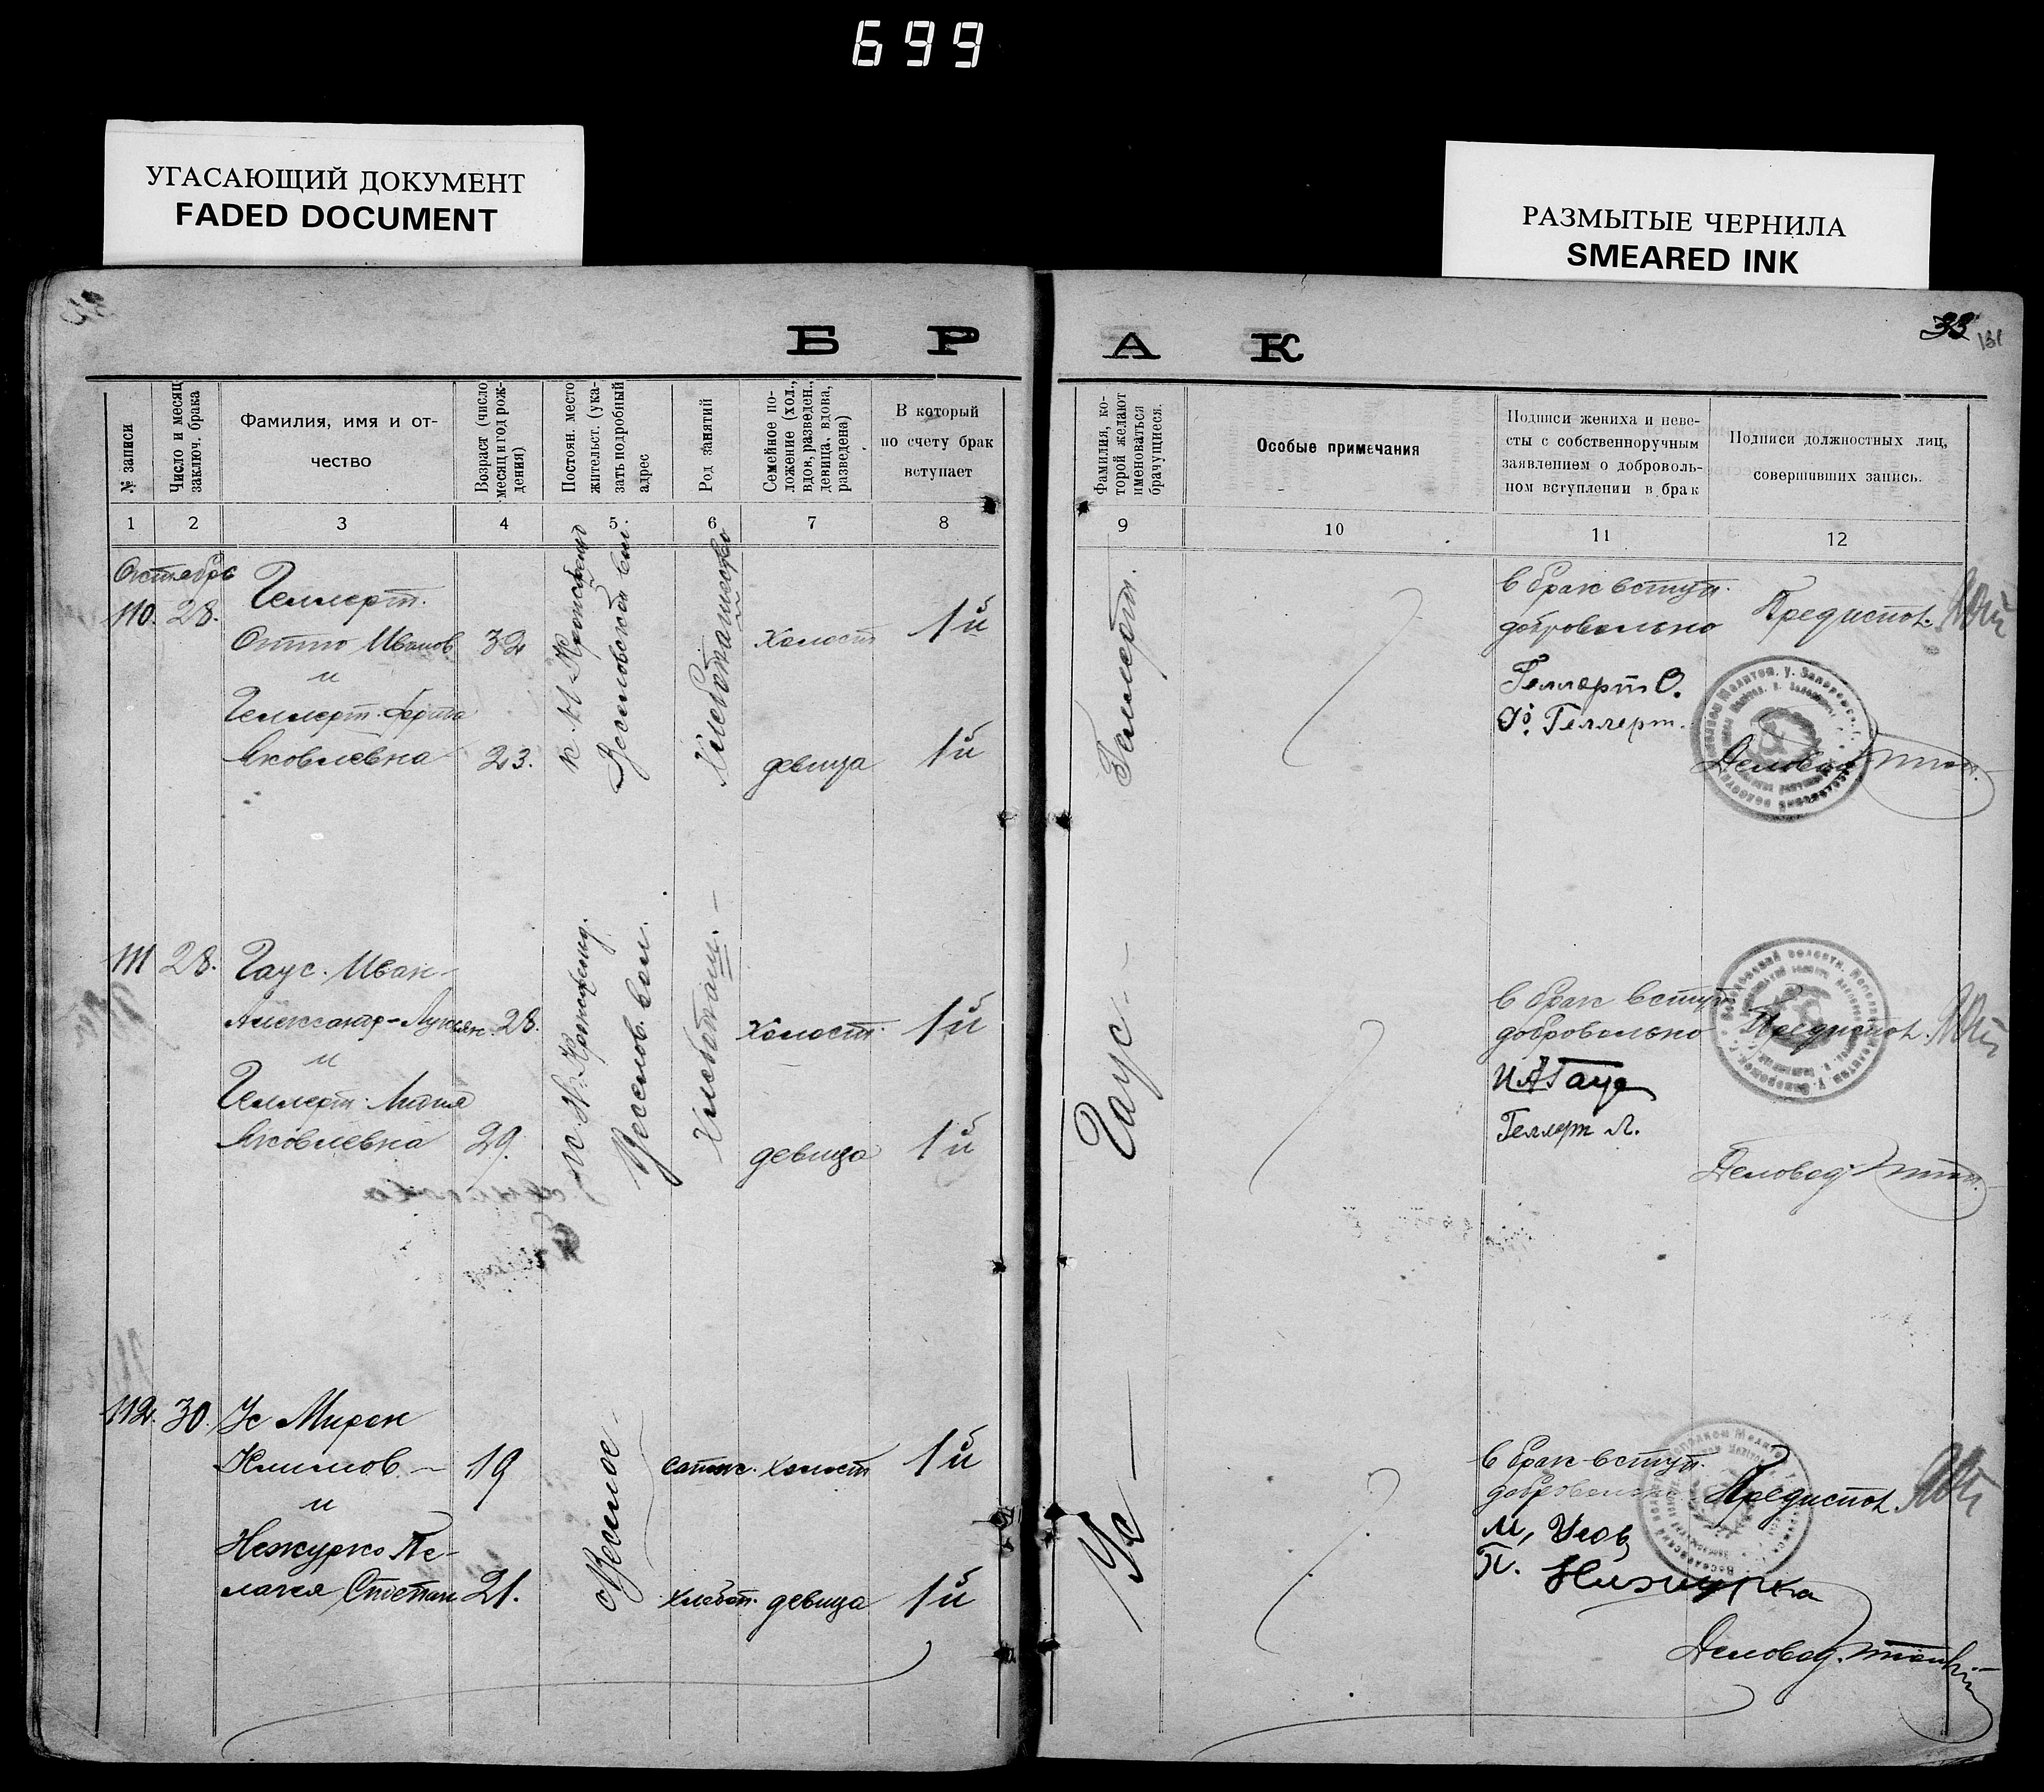 699
УГАСАЮЩИЙ ДОКУМЕНТ
FADED DOCUMENT
РАЗМЫТЫЕ ЧЕРНИЛА
SMEARED INK
БРАК
33
131
№ записи
Число и месяц
заключ. брака
Фамилия, имя и от-
чество
Возраст (число
месяц и год рож-
дения)
Постоян. место
жительст. (ука-
зать подробный
адрес
Род занятий
Семейное по-
ложение (хол.,
вдов, разведен.,
девица, вдова,
разведена)
В который
по счету брак
вступает
Фамилия, ко-
торой желают
именоваться
брачущиеся.
Особые примечания
Подписи жениха и неве-
сты с собственноручным
заявлением о доброволь-
ном вступлении в брак
Подписи должностных лиц,
совершивших запись.
1 2 3 4 5 6 7 8 9 10 11 12
Октябрь
110. 28.
Геллерт.
Отто Иванов 32
и
Геллерт Берта
Яковлевна 23.
Веселовской вол.
Хлебопашество
холост 1й
девица 1й
Геллерт.
в брак вступ.
добровольно
Геллерт О.
Геллерт.
Предиспол.
Деловод
111 28.
Гаус. Иван-
Александр- 28.
и
Геллерт Лидия
Яковлевна 29.
Веселов. вол.
Хлебопаш.
холост. 1й
девица 1й
Гаус.-
в брак вступ.
добровольно
И А Гаус
Геллерт Л.
Предиспол.
Деловод.
112. 30.
Ус Мирон
Климов.- 19
и
Нежурко Пе-
лагея Степан 21.
Веселое
сапож. холост 1й
хлебоп. девица 1й
Ус
в брак вступ.
добровольно
М, Усов
П. Нижурка
Предиспол.
Деловод.